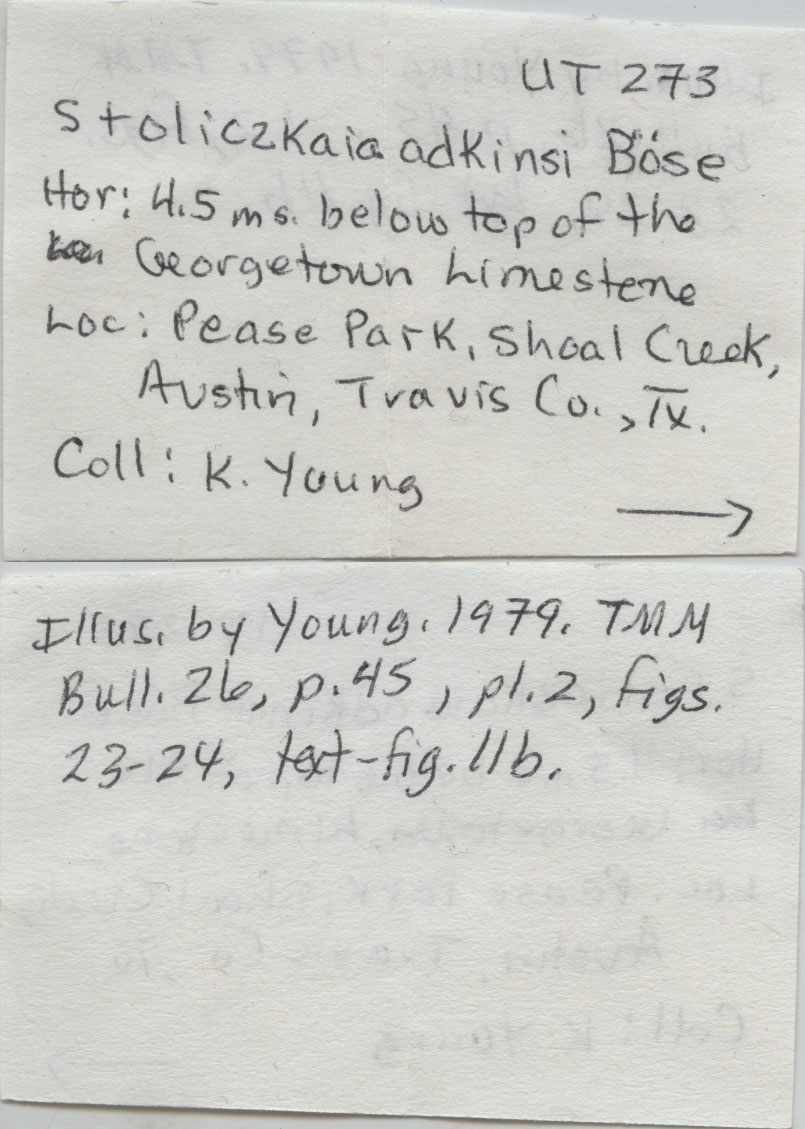 UT 273
Stoliczkaia adkinsi Böse
Hor: 4.5 ms. below top of the
Georgetown Limestone
Loc: Pease Park, Shoal Creek,
Austin, Travis Co., Tx.
Coll: K. Young
→
Illus. by Young. 1979. TMM
Bull. 26, p. 45, pl. 2, figs.
23-24, text-fig. 11b.